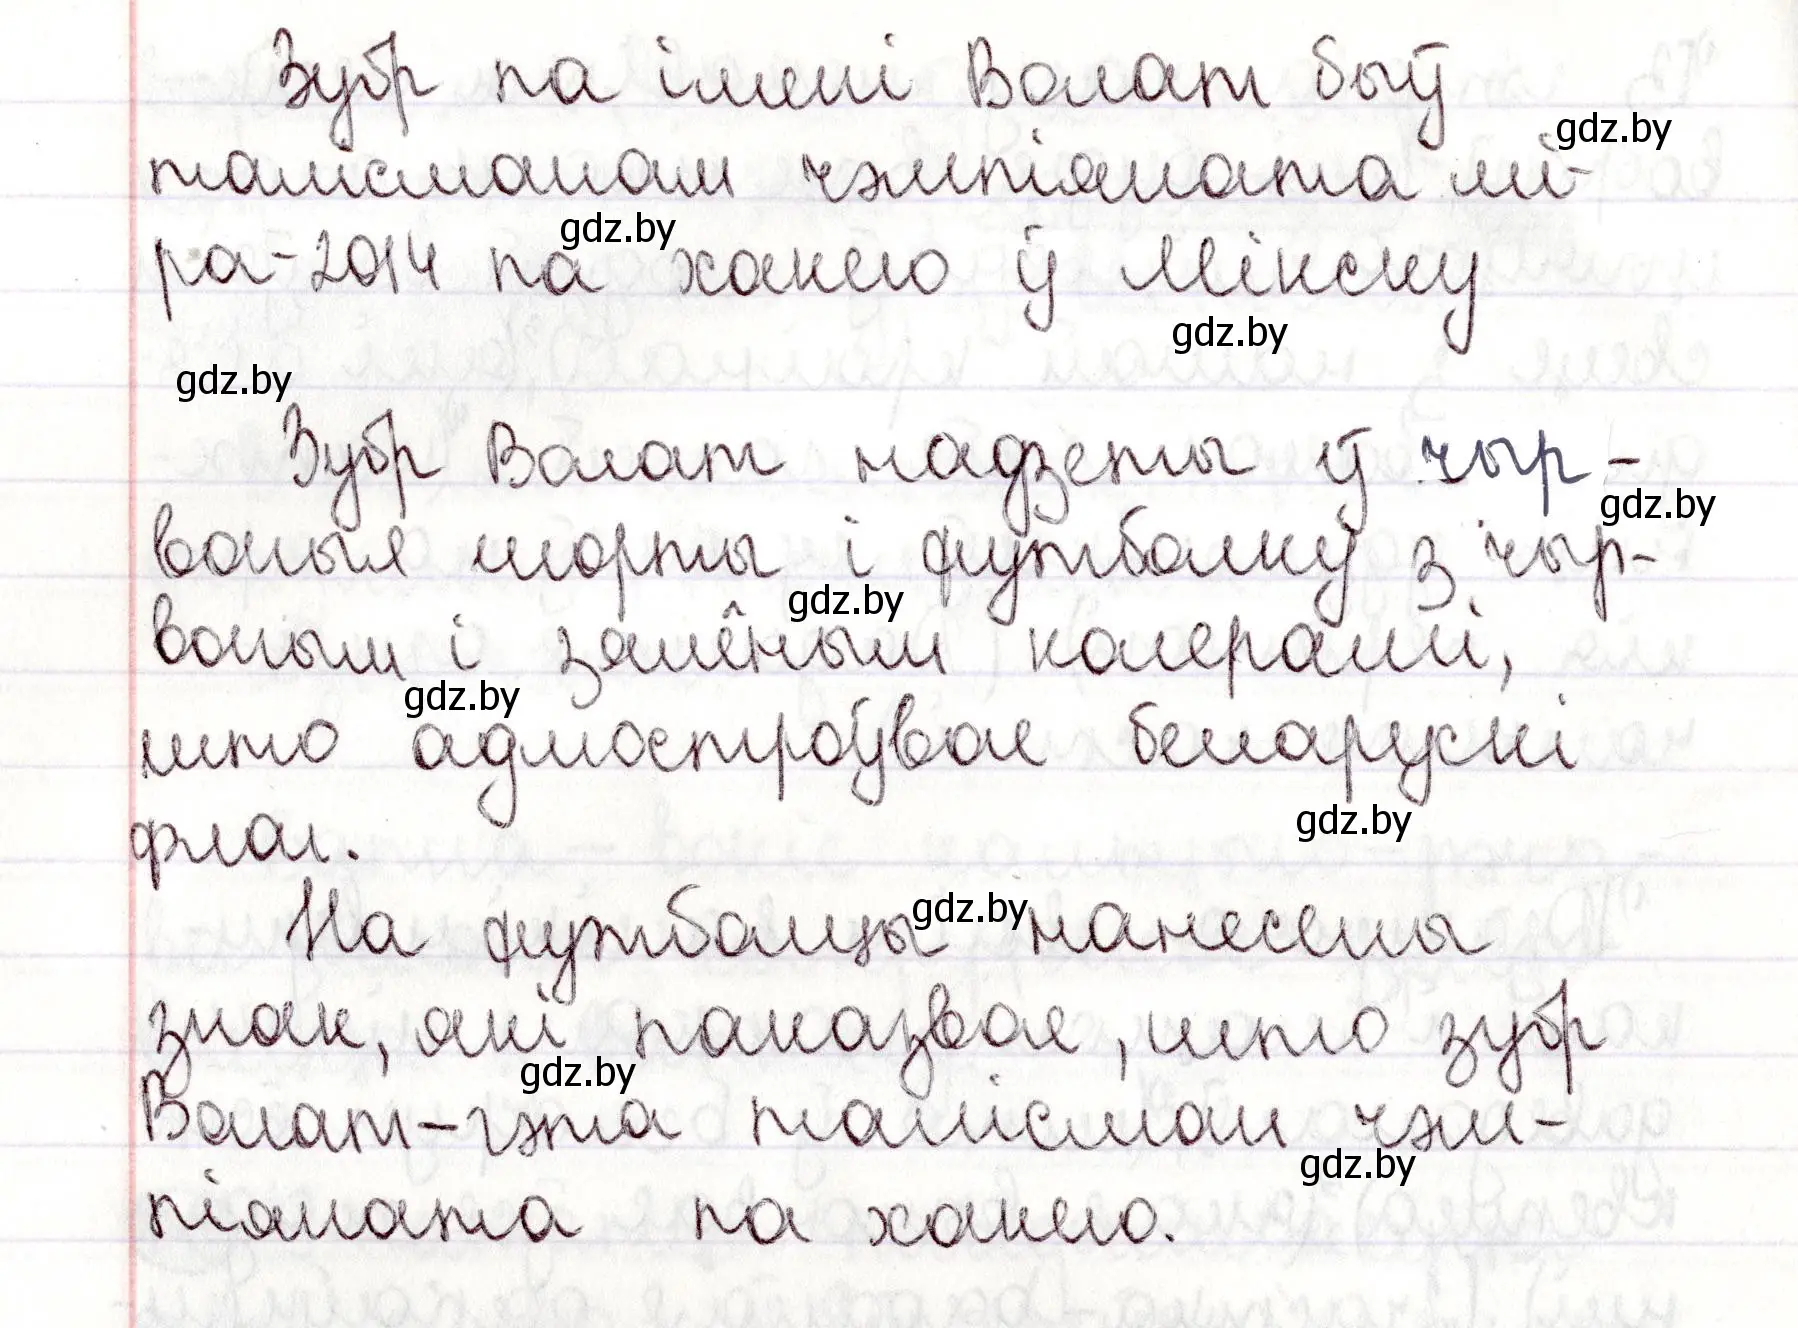 Зубр па імені Волат быў
gdz.by
талісманам чэмпіяната мі-
gdz.by
ра-2014 па хакею ў Мінску
gdz.by
gdz.by
Зубр Волат надзеты ў чыр-
gdz.by
воныя шорты і футболку з чыр-
gdz.by
воным і зялёным колерамі,
gdz.by
што адмостроўвае беларускі
gdz.by
флаг.
На футболцы нанесены
gdz.by
знак, які паказвае, што зубр
gdz.by
Волат-гэта талісман чэм-
gdz.by
піяната па хакею.